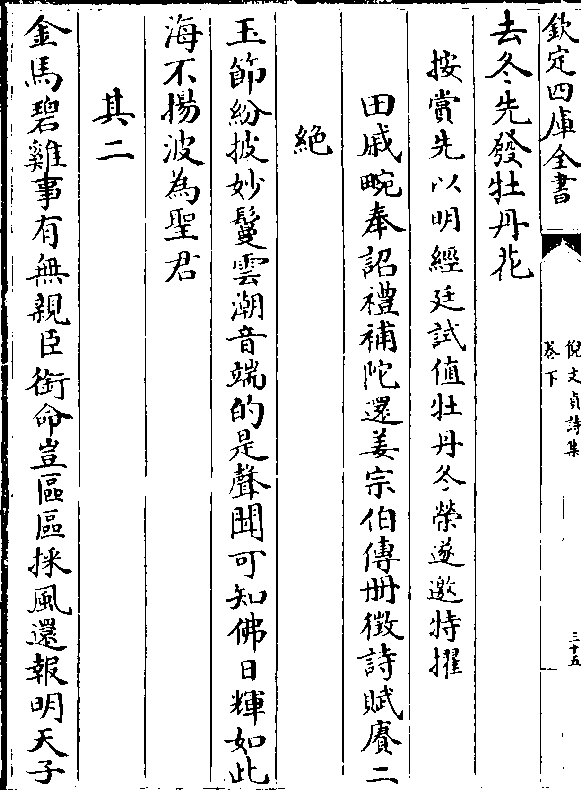 欽定四庫全書
倪文貞詩集
卷下
三十五
去冬先發牡丹花
按賞先以明經廷試值牡丹冬榮遂邀特擢
田戚畹奉詔禮補陀還姜宗伯傳冊徵詩賦賡二
絶
玉節紛披妙鬘雲潮音端的是聲聞可知佛日輝如此
海不揚波為聖君
其二
金馬碧雞事有無親臣銜命豈區區採風還報明天子